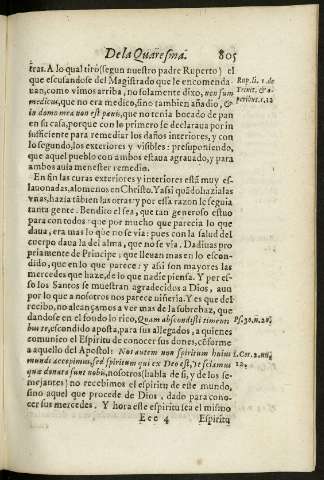 De la Quaresma. 805
tras. A lo qual tiró (segun nuestro padre Ruperto) el
que escusandose del Magistrado que le encomenda-
uan, como vimos arriba, no solamente dixo, non sum
medicus, que no era medico, sino tambien añadio, &
in domo mea non est panis, que no tenia bocado de pan
en su casa, porque con lo primero se declaraua por in
suficiente para remediar los daños interiores, y con
lo segundo, los exteriores y visibles: presuponiendo,
que aquel pueblo con ambos estaua agrauado, y para
ambos auia menester remedio.
En fin las curas exteriores y interiores está muy es-
lauonadas, alomenos en Christo. Y assi quãdo hazia las
vnas, hazia tãbien las otras: y por essa razon le seguia
tanta gente. Bendito el sea, que tan generoso estuuo
para con todos: que por mucho que parecia lo que
daua, era mas lo que no se via: pues con la salud del
cuerpo daua la del alma, que no se via. Dadiuas pro
piamente de Principe: que lleuan mas en lo escon-
dido, que en lo que parece: y assi son mayores las
mercedes que haze, de lo que nadie piensa. Y por es-
so los Santos se muestran agradecidos a Dios, aun
por lo que a nosotros nos parece niñeria. Y es que del
recibo, no alcançamos a ver mas de la subrehaz, que
dandose en el fondo lo rico, Quam abscondisti timenti
bus te, escondido aposta, para sus allegados, a quienes
comunico el Espiritu de conocer sus dones, cõforme
a aquello del Apostol: Nos autem non spiritum huius
mundi accepimus, sed spiritum qui ex Deo est, vt sciamus
quæ donata sunt nobis, nosotros (habla de si, y de los se-
mejantes) no recebimos el espiritu de este mundo,
sino aquel que procede de Dios, dado para cono-
cer sus mercedes. Y hora este espiritu sea el mismo
Eee 4 Espiritu
Rup. li. 1. de
Trinit. & o-
peribus. c.12
Ps. 30. n. 20.
1. Cor. 2. nu.
12.